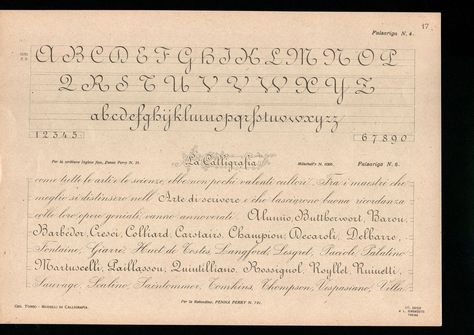 17
Falsariga N. 4.
A B C D E F G H I K L M N O P
Q R S T U V V W X Y Z
abcdefghijklmnopqrstuvwxyz
1 2 3 4 5
6 7 8 9 0
Per la scrittura inglese fine, Penna Perry N. 71.
La Calligrafia
Mitchell's N.
Falsariga N. 5.
come tutte le arti e le scienze, ebbe non pochi valenti cultori. Fra i maestri che
meglio si distinsero nell'Arte di scrivere e che lasciarono buona ricordanza
colle loro opere geniali, vanno annoverati: Alunnio, Buttherwort, Barou,
Barbedor, Cresci, Colliard, Carstairs, Champion, Decaroli, Delbarre,
Fontaine, Giarrè, Huet de Tostes, Langford, Lesgret, Pacioli, Palatino
Martuscelli, Paillasson, Quintilliano, Rossignol, Roÿllet, Ruinetti,
Sauvage, Sealino, Saintommer, Tomkins, Thompson, Vespasiano, Villa.
Per la Rotondina, PENNA PERRY N. 791.
Geo. Tonso - Modelli di Calligrafia.